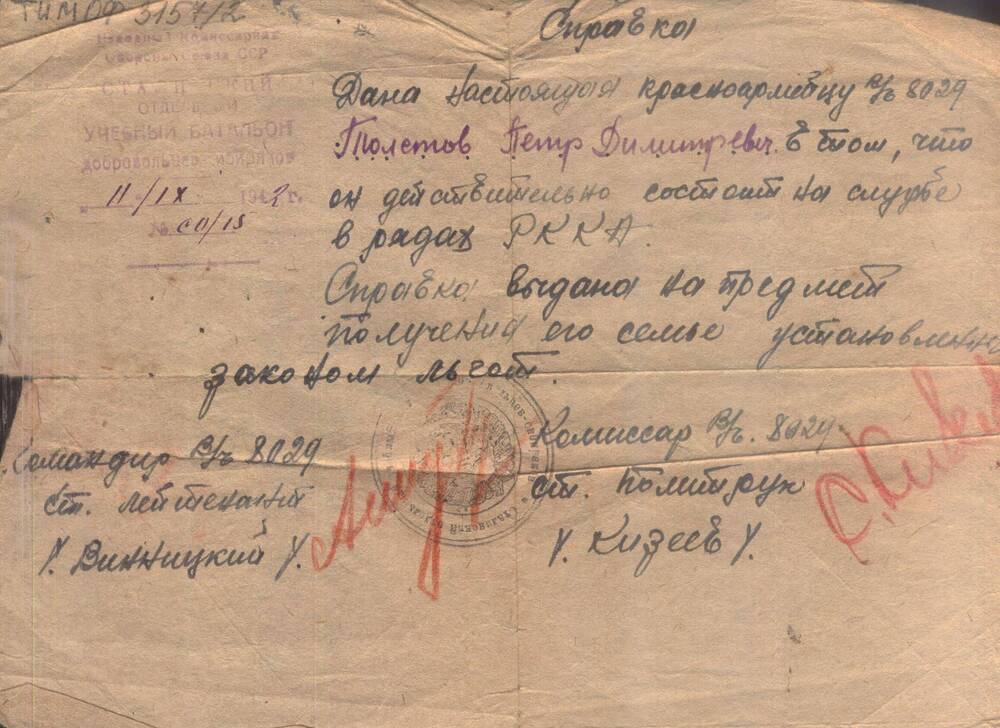 ТИМ ОФ 3157/2
Народный Комиссариат
Обороны Союза ССР
УЧЕБНЫЙ БАТАЛЬОН
добровольцев
„11/IX 1942 г.
№ 00/15
Справка
Дана настоящая красноармейцу В/ч 8029
Толстов Петр Димитревич. в том, что
он действительно состоит на службе
в рядах РККА.
Справка выдана на предмет
получения его семье установленных
законом льгот.
Командир В/ч 8029
ст. лейтенант
/. Винницкий /.
Комиссар В/ч. 8029
ст. Политрук
/. Кизеев /.
Сталинский отдел